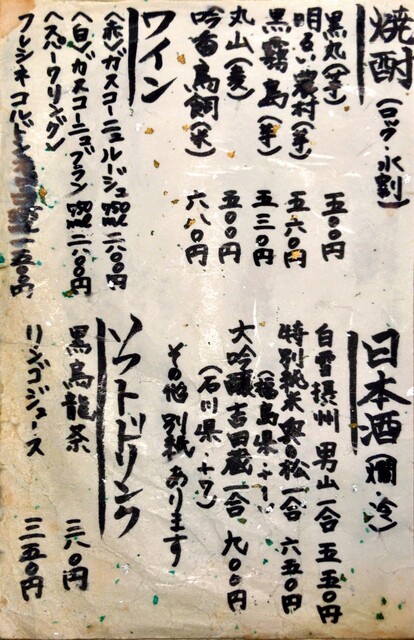 焼酎(ロック・水割)
黒丸(芋) 五〇〇円
明るい農村(芋) 五六〇円
黒霧島(芋) 五三〇円
丸山(麦) 五〇〇円
吟香鳥飼(米) 六八〇円
ワイン
〈赤〉ガスコーニュルージュ 二八〇〇円
〈白〉ガスコーニュブラン 二八〇〇円
〈スパークリング〉
フレシネコルドン 一五〇円
日本酒(燗・冷)
白雪摂州男山一合 五五〇円
特別純米奥の松一合 六五〇円
(福島県・+1)
大吟醸吉田蔵一合 九〇〇円
(石川県・+7)
その他別紙あります
ソフトドリンク
黒烏龍茶 三八〇円
リンゴジュース 三五〇円